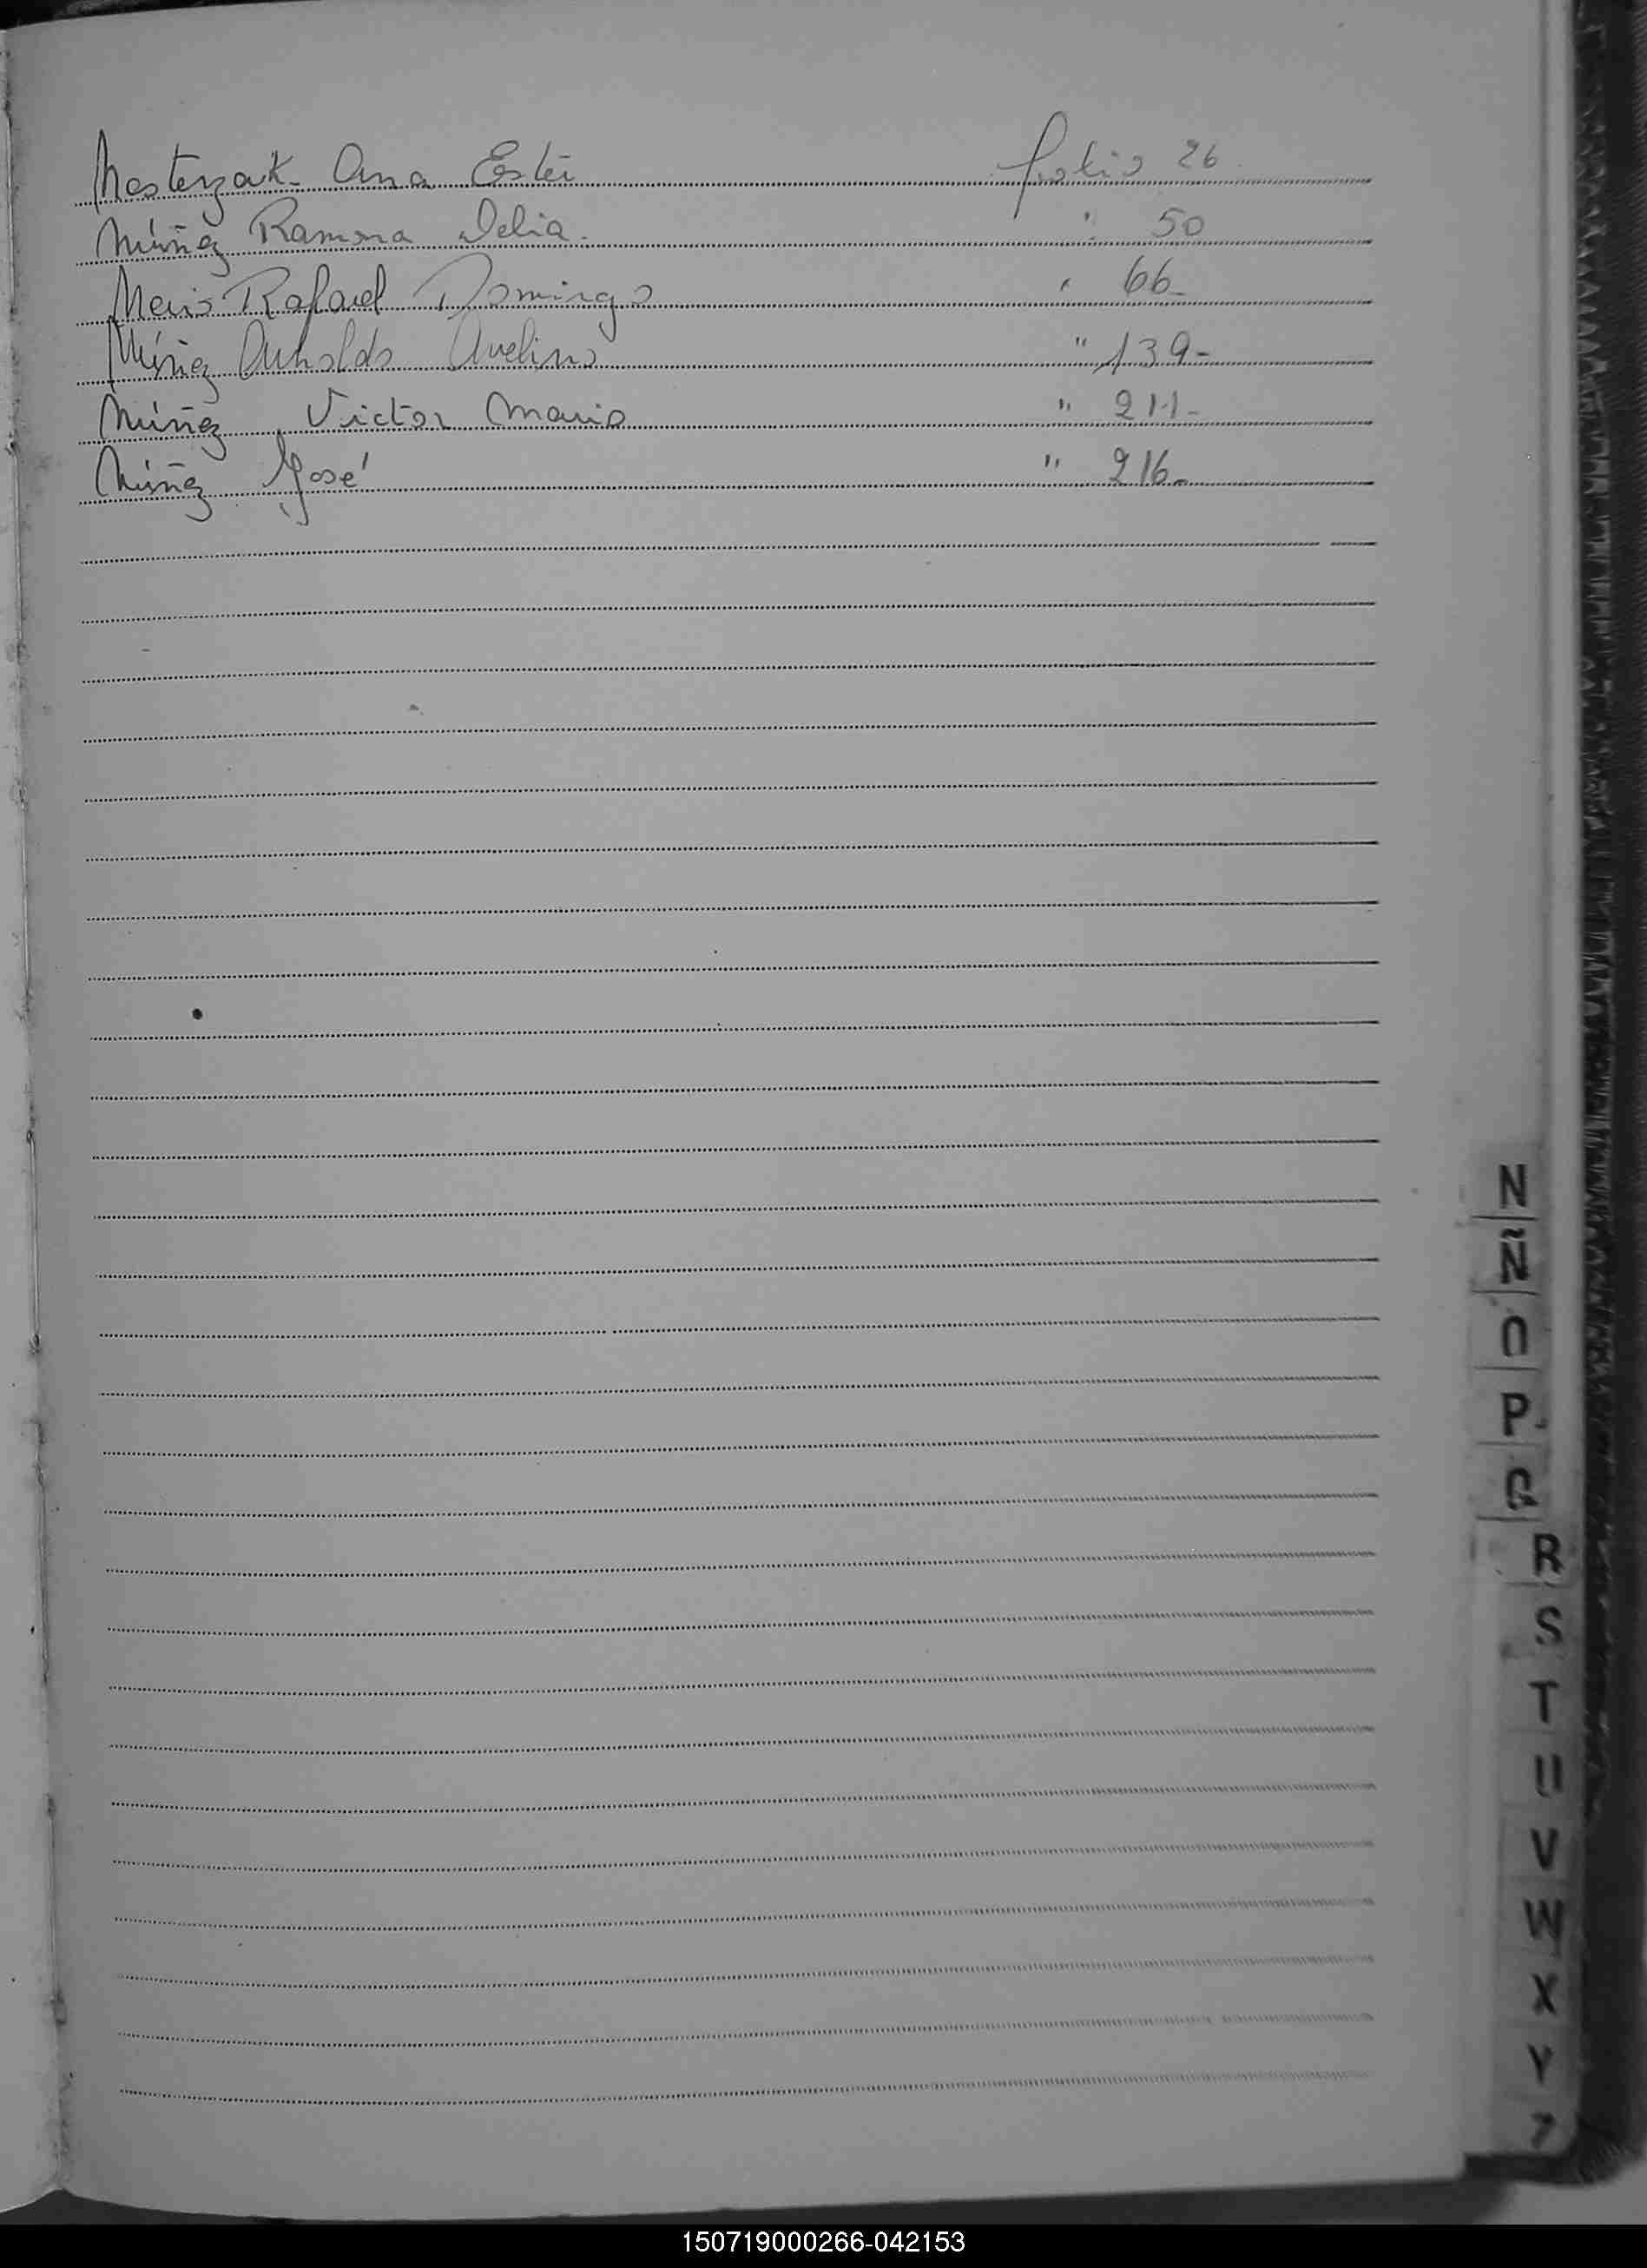 Nesterzak Ana Ester folio 26
Núñez Ramona Delia. " 50
Neris Rafael Domingo " 66-
Núñez Arnoldo Avelino " 139-
Núñez Victor Mario " 211-
Núñez José " 216-
N
Ñ
O
P
Q
R
S
T
U
V
W
X
Y
Z
150719000266-042153